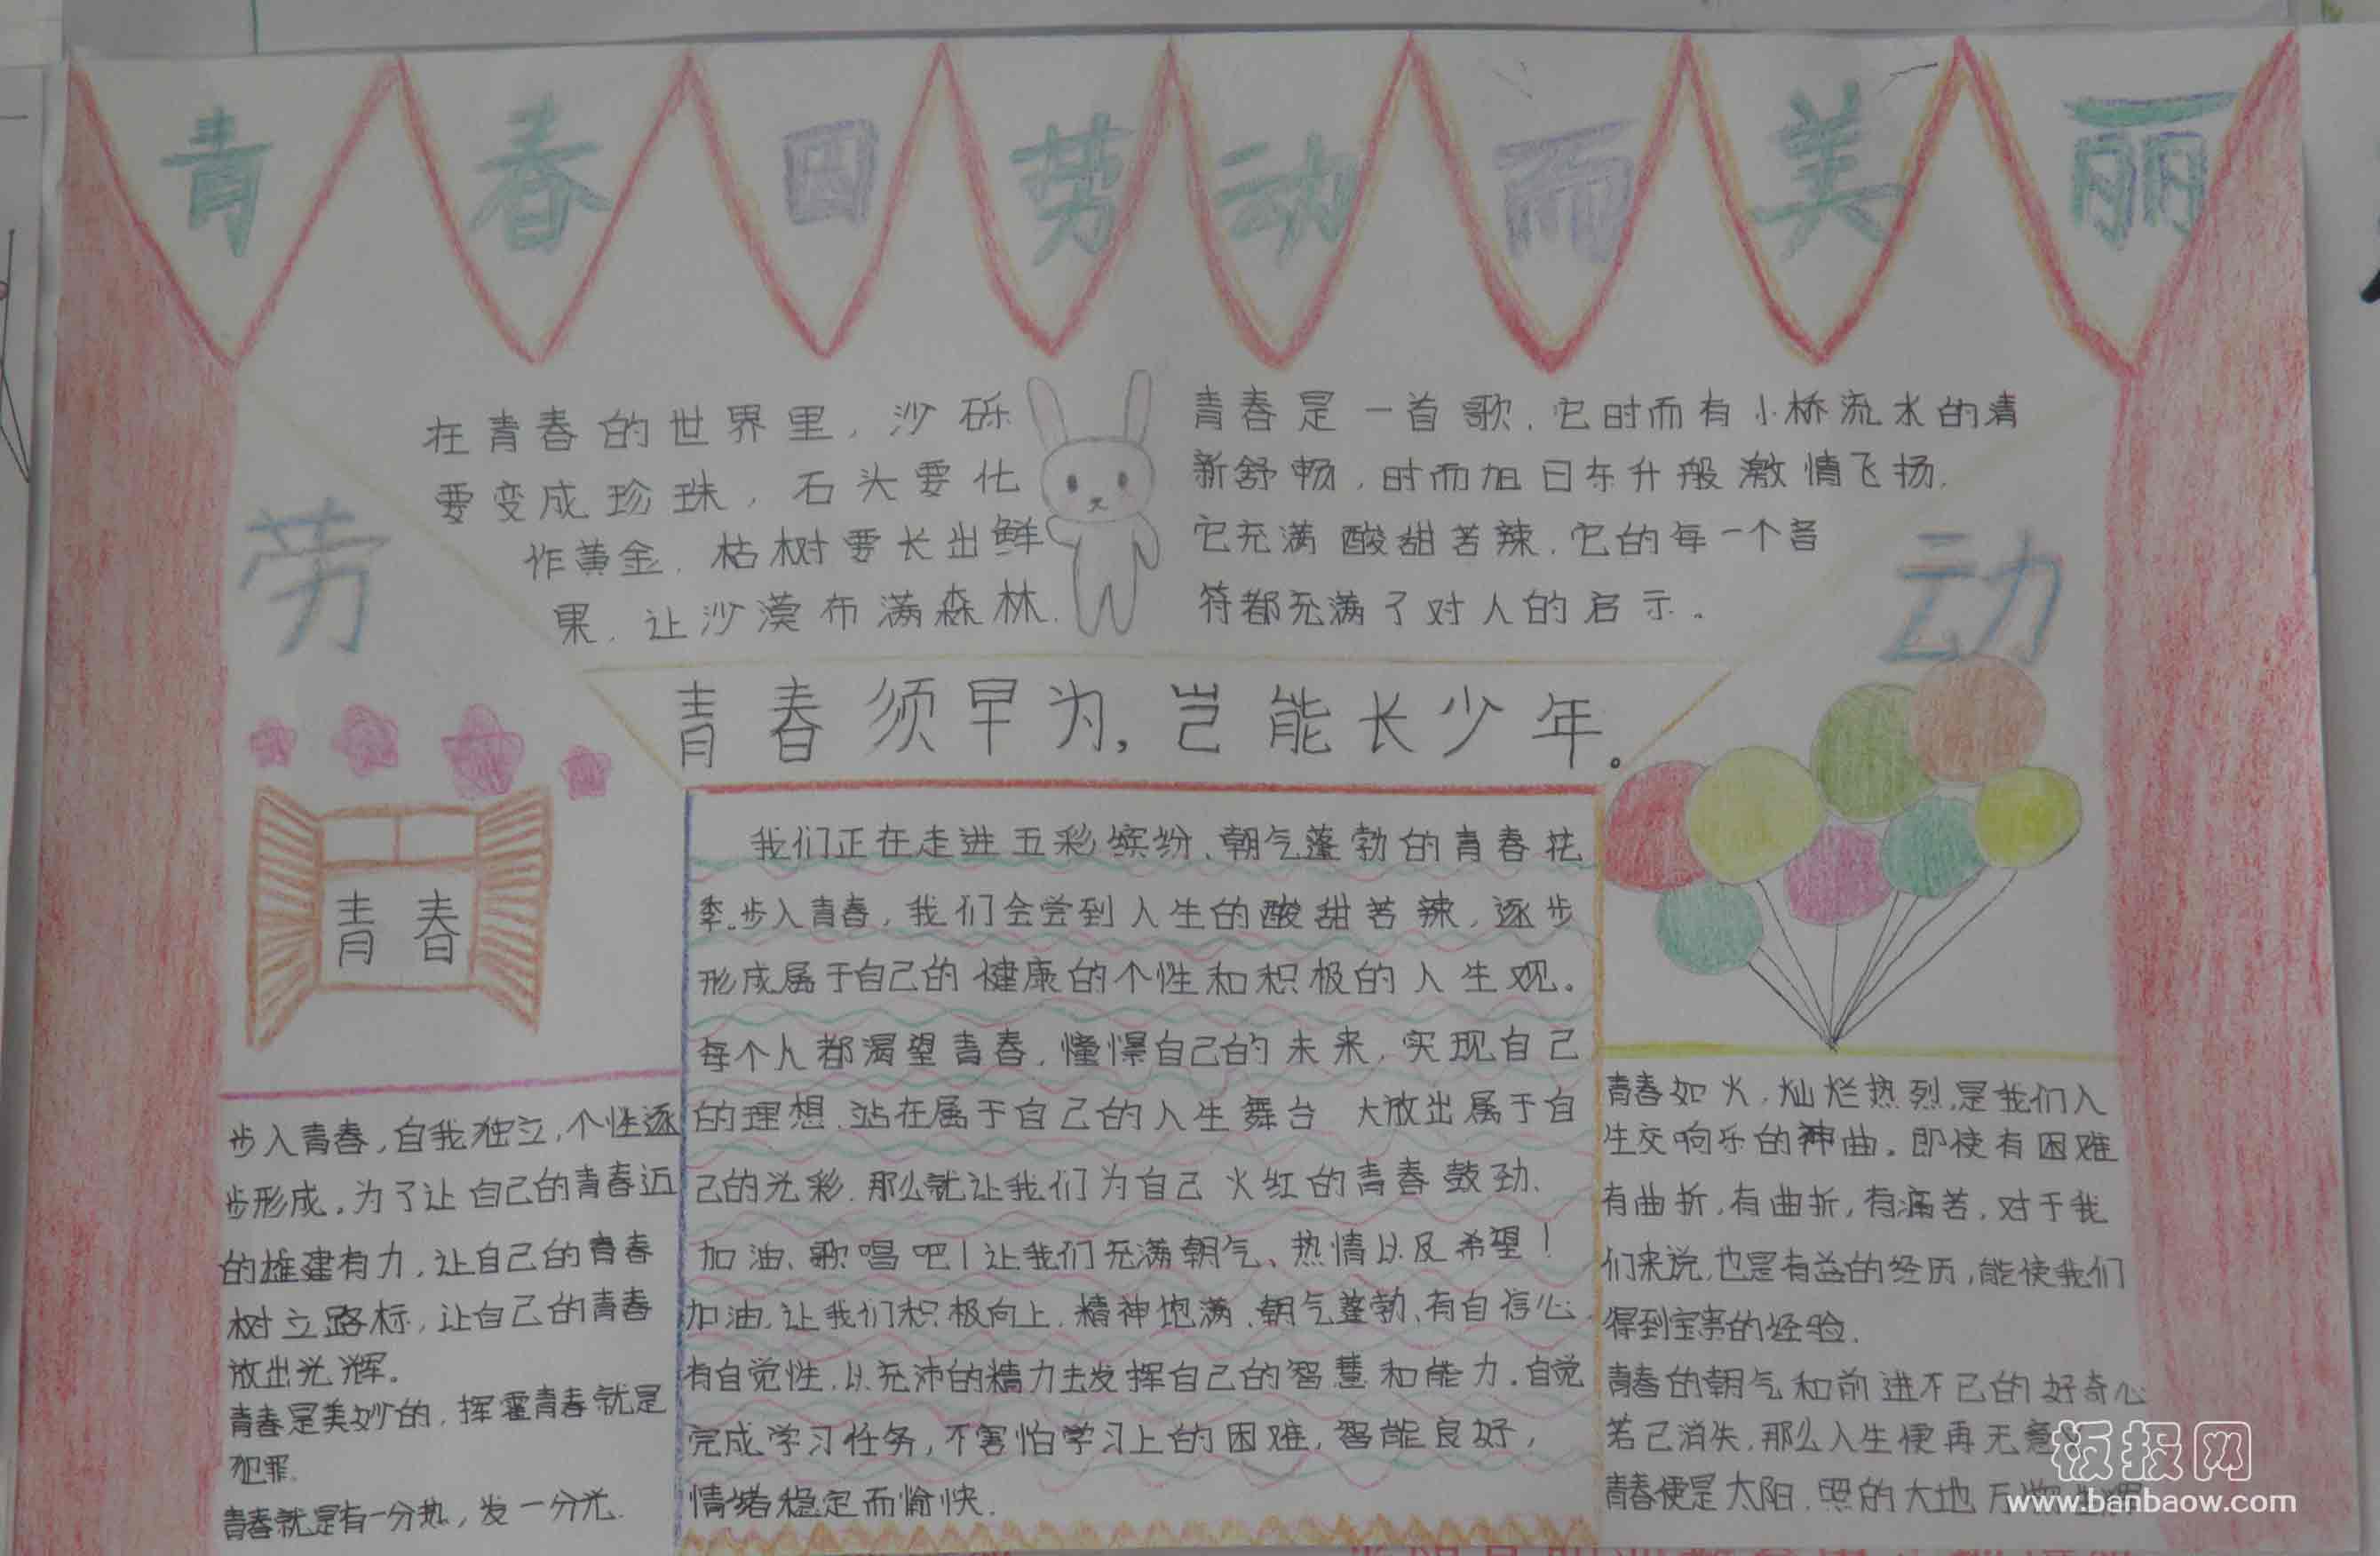 青春因劳动而美丽
在青春的世界里，沙砾
要变成珍珠，石头要化
作黄金．枯树要长出鲜
果．让沙漠布满森林．
青春是一首歌．它时而有小桥流水的清
新舒畅，时而旭日东升般激情飞扬．
它充满酸甜苦辣．它的每一个音
符都充满了对人的启示。
劳
动
青春须早为，岂能长少年。
青春
步入青春，自我独立，个性逐
步形成。为了让自己的青春近
的雄建有力，让自己的青春
树立路标，让自己的青春
放出光辉。
青春是美妙的，挥霍青春就是
犯罪．
青春就是有一分热，发一分光．
我们正在走进五彩缤纷、朝气蓬勃的青春花
季。步入青春，我们会尝到人生的酸甜苦辣，逐步
形成属于自己的健康的个性和积极的人生观。
每个人都渴望青春，憧憬自己的未来，实现自己
的理想．站在属于自己的人生舞台 大放出属于自
己的光彩．那么就让我们为自己火红的青春鼓劲、
加油、歌唱吧！让我们充满朝气、热情以及希望！
加油，让我们积极向上，精神饱满、朝气蓬勃、有自信心．
有自觉性，以充沛的精力去发挥自己的智慧和能力。自觉
完成学习任务，不害怕学习上的困难，智能良好，
情绪稳定而愉快．
青春如火，灿烂热烈，是我们人
生交响乐的神曲。即使有困难
有曲折，有曲折，有痛苦，对于我
们来说，也是有益的经历，能使我们
得到宝贵的经验．
青春的朝气和前进不已的好奇心
若已消失，那么人生便再无意
青春便是太阳．照的大地万物生辉
板报网
www.banbaow.com